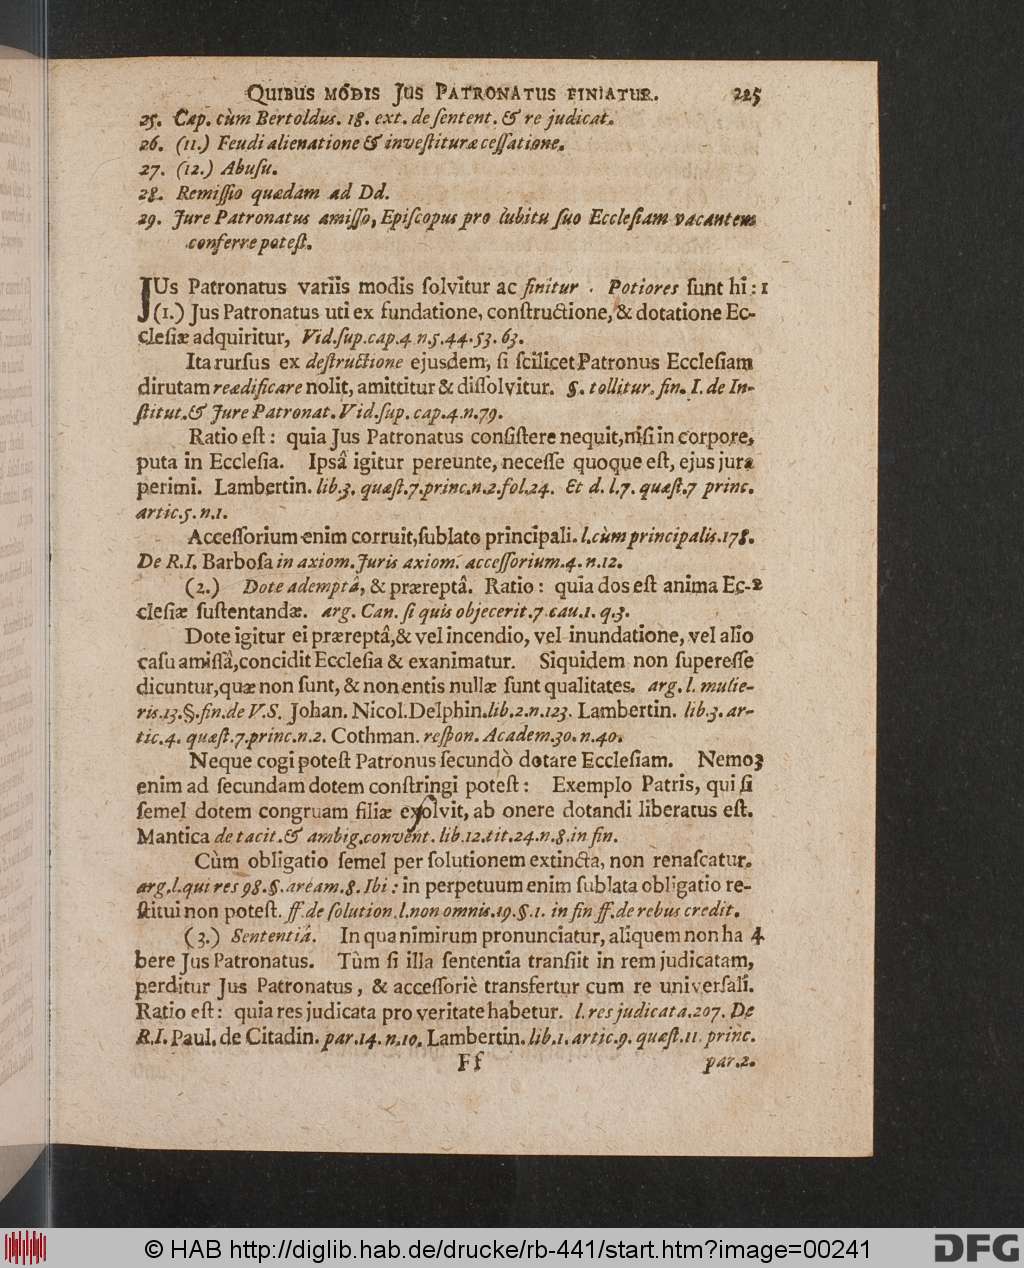 QUIBUS MODIS JUS PATRONATUS FINIATUR. 225
25. Cap. cùm Bertoldus. 18. ext. de sentent. & re judicat.
26. (11.) Feudi alienatione & investituræ cessatione.
27. (12.) Abusu.
28. Remissio quædam ad Dd.
29. Jure Patronatus amisso, Episcopus pro lubitu suo Ecclesiam vacantem
conferre potest.
JUs Patronatus variis modis solvitur ac finitur . Potiores sunt hi : 1
(1.) Jus Patronatus uti ex fundatione, constructione, & dotatione Ec-
clesiæ adquiritur, Vid. sup. cap. 4 n. 5. 44. 53. 63.
Ita rursus ex destructione ejusdem, si scilicet Patronus Ecclesiam
dirutam reædificare nolit, amittitur & dissolvitur. §. tollitur. fin. I. de In-
stitut. & Jure Patronat. Vid. sup. cap. 4. n. 79.
Ratio est : quia Jus Patronatus consistere nequit, nisi in corpore,
puta in Ecclesia. Ipsâ igitur pereunte, necesse quoque est, ejus jura
perimi. Lambertin. lib. 3. quæst. 7. princ. n. 2. fol. 24. Et d. l. 7. quæst. 7 princ.
artic. 5. n. 1.
Accessorium enim corruit, sublato principali. l. cùm principalis. 178.
De R. I. Barbosa in axiom. Juris axiom. accessorium. 4. n. 12.
(2.) Dote ademptâ, & præreptâ. Ratio : quia dos est anima Ec- 2
clesiæ sustentandæ. arg. Can. si quis objecerit. 7. cau. 1. q. 3.
Dote igitur ei præreptâ, & vel incendio, vel inundatione, vel alio
casu amissâ, concidit Ecclesia & exanimatur. Siquidem non superesse
dicuntur, quæ non sunt, & non entis nullæ sunt qualitates. arg. l. mulie-
ris. 13. §. fin. de V. S. Johan. Nicol. Delphin. lib. 2. n. 123. Lambertin. lib. 3. ar-
tic. 4. quæst. 7. princ. n. 2. Cothman. respon. Academ. 30. n. 40.
Neque cogi potest Patronus secundò dotare Ecclesiam. Nemo 3
enim ad secundam dotem constringi potest : Exemplo Patris, qui si
semel dotem congruam filiæ exsolvit, ab onere dotandi liberatus est.
Mantica de tacit. & ambig. convent. lib. 12. tit. 24. n. 8. in fin.
Cùm obligatio semel per solutionem extincta, non renascatur.
arg. l. qui res 98. §. aream. 8. Ibi : in perpetuum enim sublata obligatio re-
stitui non potest. ff. de solution. l. non omnis. 19. §. 1. in fin ff. de rebus credit.
(3.) Sententiâ. In qua nimirum pronunciatur, aliquem non ha 4
bere Jus Patronatus. Tùm si illa sententia transiit in rem judicatam,
perditur Jus Patronatus, & accessoriè transfertur cum re universali.
Ratio est : quia res judicata pro veritate habetur. l. res judicata. 207. De
R. I. Paul. de Citadin. par. 14. n. 10. Lambertin. lib. 1. artic. 9. quæst. 11. princ.
Ff par. 2.
© HAB http://diglib.hab.de/drucke/rb-441/start.htm?image=00241
DFG